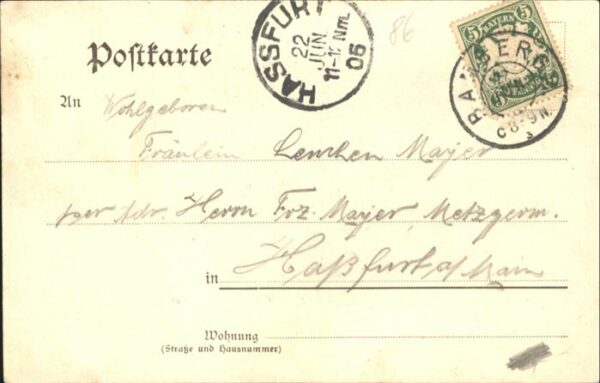 Postkarte
HASSFURT
22
JUN
11-12 Nm.
06
86
5 BAYERN 5
BAMBERG
8-9N.
3
An Wohlgeboren
Fräulein Lenchen Majer
per Adr. Herrn Frz. Majer, Metzgerm.
in Haßfurt a/Main
Wohnung
(Straße und Hausnummer)